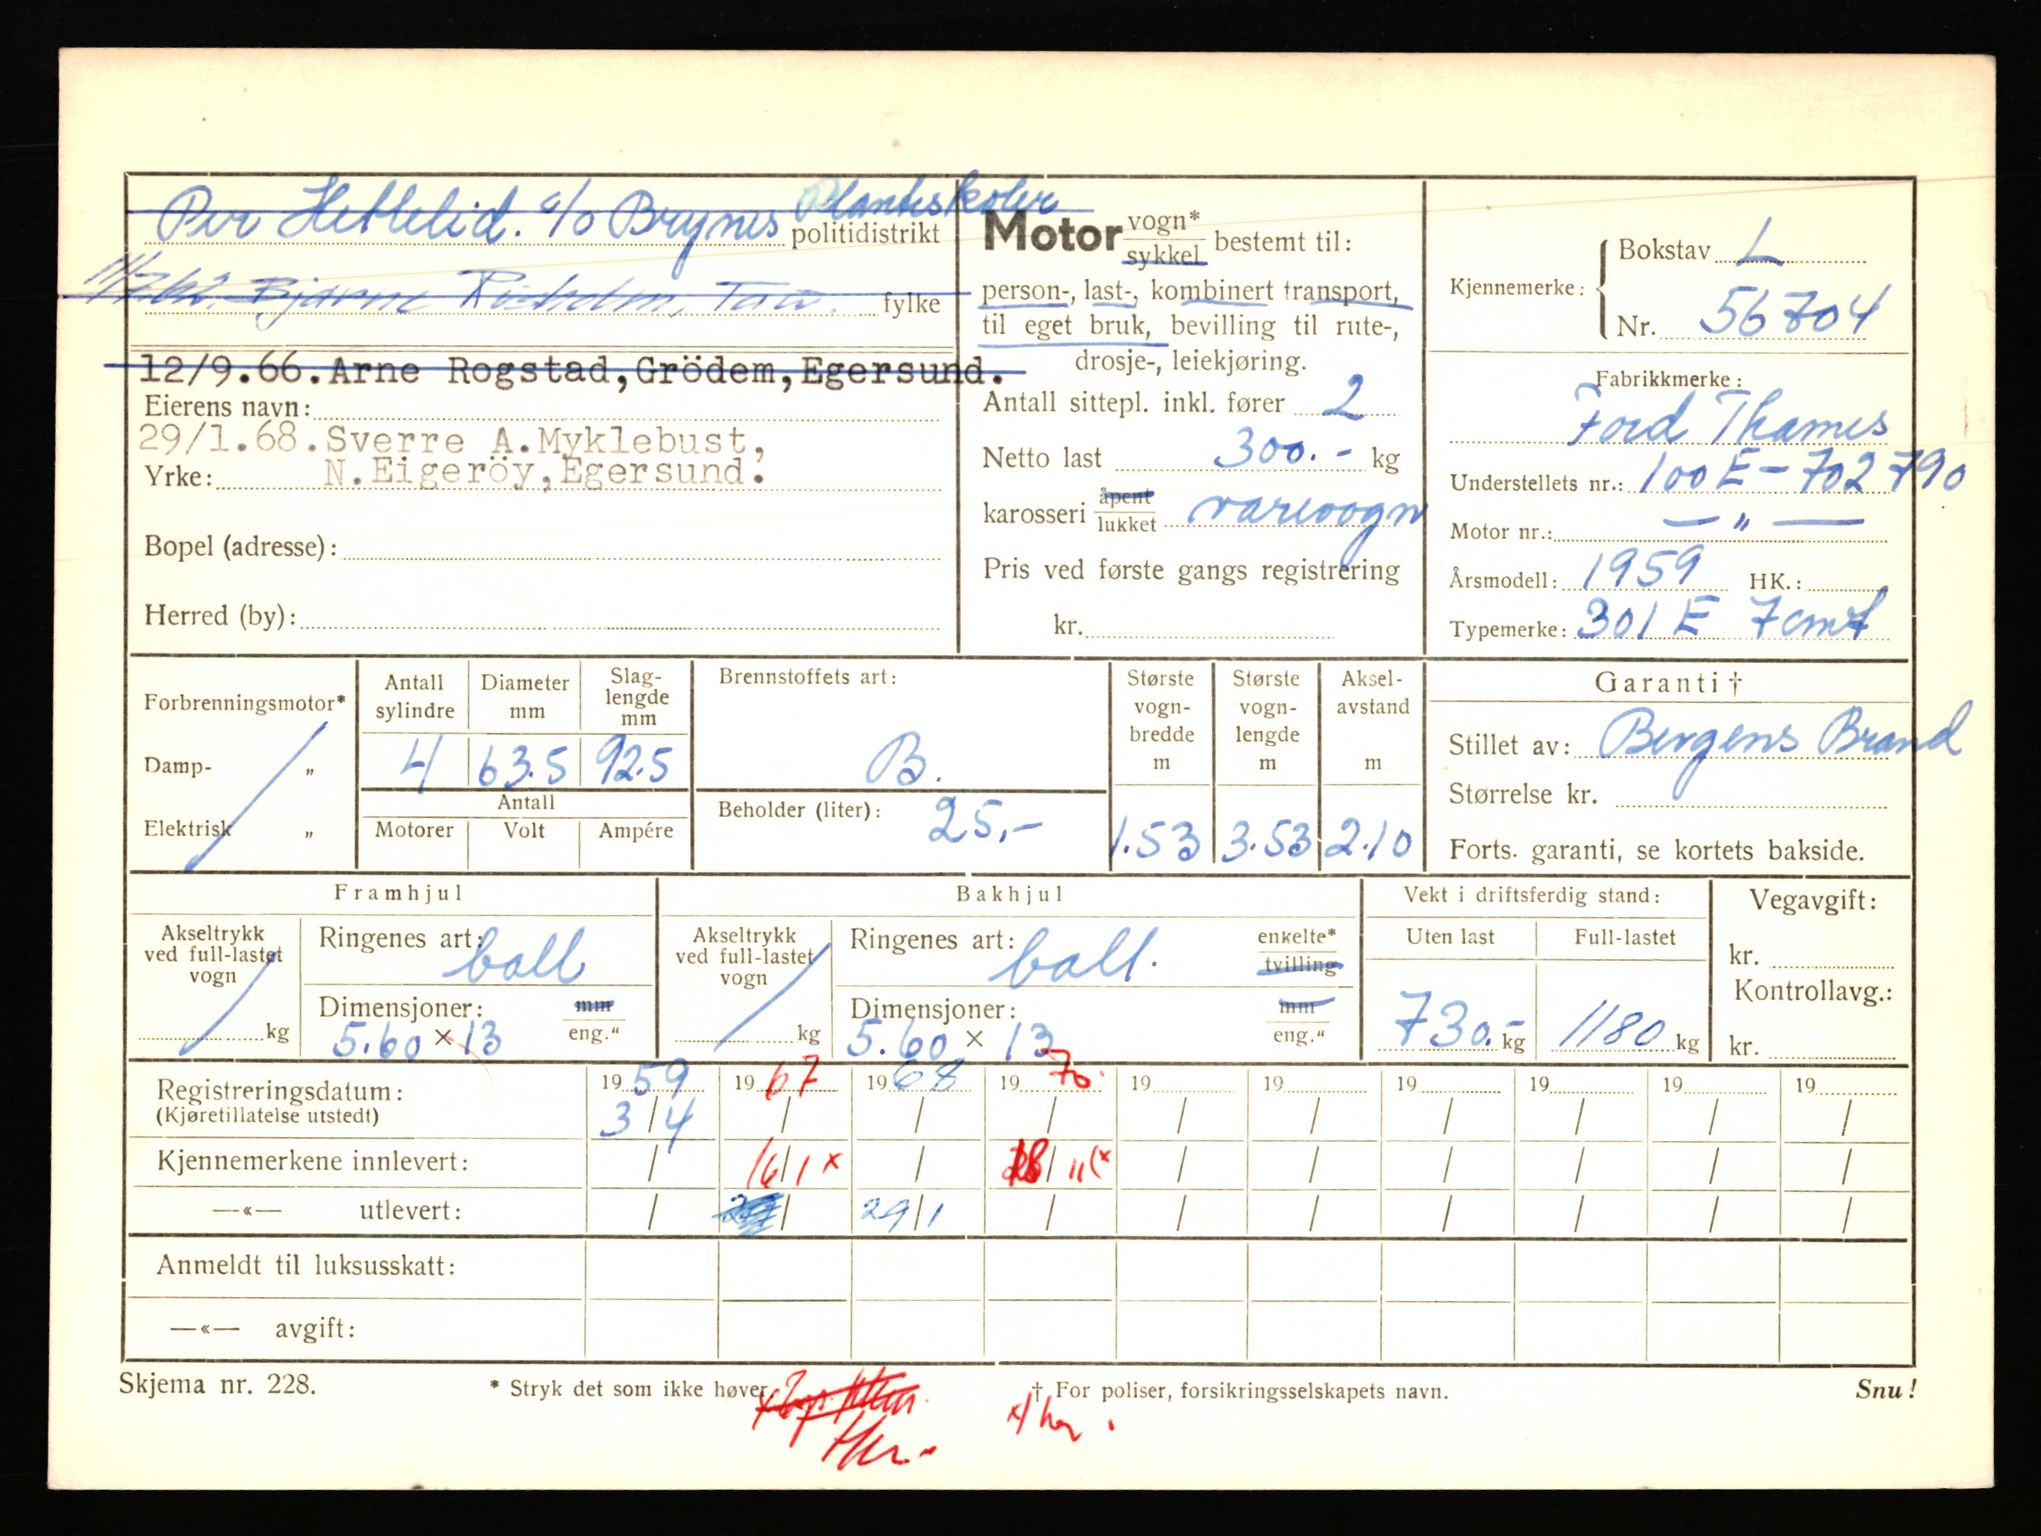 Per Hetlelid. c/o Brynes Planteskoler
politidistrikt
Bjarne Tau. fylke
12/9.66.Arne Rogstad,Grödem,Egersund.
Eierens navn:
29/1.68.Sverre A.Myklebust,
Yrke: N.Eigeröy,Egersund.
Bopel (adresse):
Herred (by):
Motor vogn* sykkel bestemt til:
person-, last-, kombinert transport,
til eget bruk, bevilling til rute-,
drosje-, leiekjøring.
Antall sittepl. inkl. fører 2
Netto last 300.- kg
karosseri åpent lukket varevogn
Pris ved første gangs registrering
kr.
Kjennemerke: Bokstav L
Nr. 56704
Fabrikkmerke:
Ford Thames
Understellets nr.: 100E-702790
Motor nr.: — " —
Årsmodell: 1959 HK.:
Typemerke: 301 E 7cwt
Forbrenningsmotor*
Damp- "
Elektrisk "
Antall sylindre 4
Diameter mm 63.5
Slag-lengde mm 92.5
Antall
Motorer Volt Ampére
Brennstoffets art:
B.
Beholder (liter): 25,-
Største vogn-bredde m 1.53
Største vogn-lengde m 3.53
Aksel-avstand m 2.10
Garanti †
Stillet av: Bergens Brand
Størrelse kr.
Forts. garanti, se kortets bakside.
Framhjul
Akseltrykk ved full-lastet vogn kg
Ringenes art: ball
Dimensjoner: mm eng."
5.60 × 13
Bakhjul
Akseltrykk ved full-lastet vogn kg
Ringenes art: ball. enkelte* tvilling
Dimensjoner: mm eng."
5.60 × 13
Vekt i driftsferdig stand:
Uten last Full-lastet
730.- kg 1180 kg
Vegavgift:
kr.
Kontrollavg.:
kr.
Registreringsdatum: 1959 1967 1968 1970. 19 19 19 19 19 19
(Kjøretillatelse utstedt) 3/4 / / / / / / / / /
Kjennemerkene innlevert: / 16/1 x / 18/11 (x / / / / / /
—«— utlevert: / / 29/1 / / / / / / /
Anmeldt til luksusskatt:
—«— avgift:
Skjema nr. 228. * Stryk det som ikke høver. † For poliser, forsikringsselskapets navn. Snu!
x/ her.
Her.